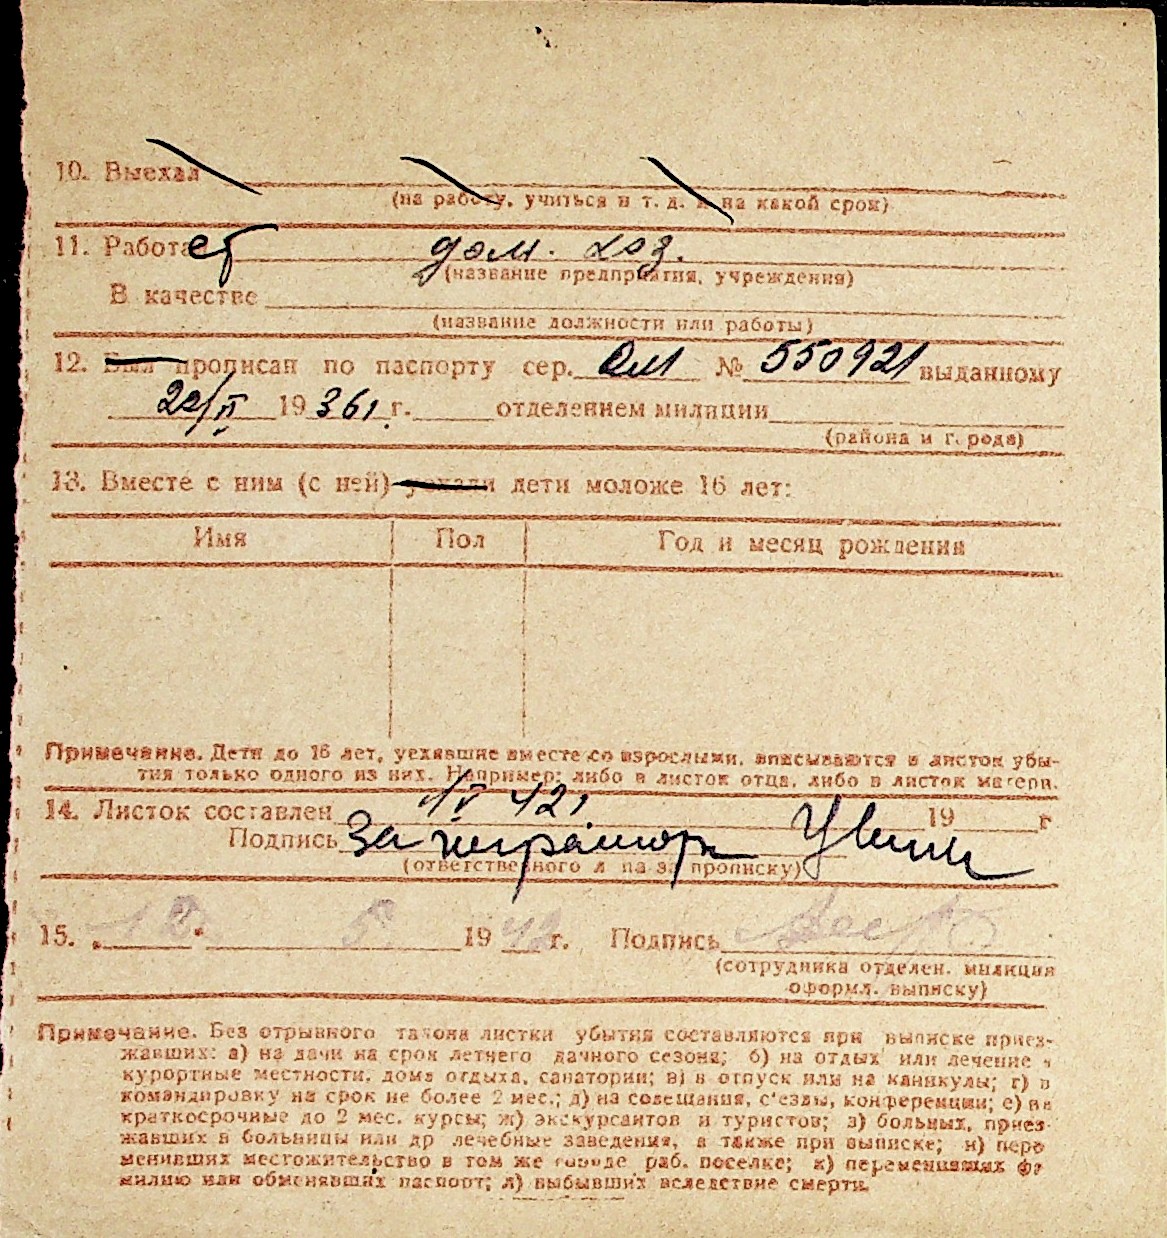 10. Выехал
(на работу, учиться и т. д. и на какой срок)
11. Работает дом. хоз.
(название предприятия, учреждения)
В качестве
(название должности или работы)
12. Был прописан по паспорту сер. № 550921 выданному
19361 г. отделением милиции
(района и города)
13. Вместе с ним (с ней) уехали дети моложе 16 лет:
Имя Пол Год и месяц рождения
Примечание. Дети до 16 лет, уехавшие вместе со взрослыми, вписываются в листок убы-
тия только одного из них. Например: либо в листок отца, либо в листок матери.
14. Листок составлен 1/V 42 19 г
Подпись За
(ответственного л па за прописку)
15. " 12 " 5 1942 г. Подпись
(сотрудника отделен. милиции
оформл. выписку)
Примечание. Без отрывного талона листки убытия составляются при выписке приез-
жавших: а) на дачи на срок летнего дачного сезона; б) на отдых или лечение в
курортные местности, дома отдыха, санатории; в) в отпуск или на каникулы; г) в
командировку на срок не более 2 мес.; д) на совещания, с'езды, конференции; е) на
краткосрочные до 2 мес. курсы; ж) экскурсантов и туристов; з) больных, приез-
жавших в больницы или др лечебные заведения, а также при выписке; и) пере
менивших местожительство в том же городе, раб. поселке; к) переменивших фа
милию или обменявших паспорт; л) выбывших вследствие смерти.